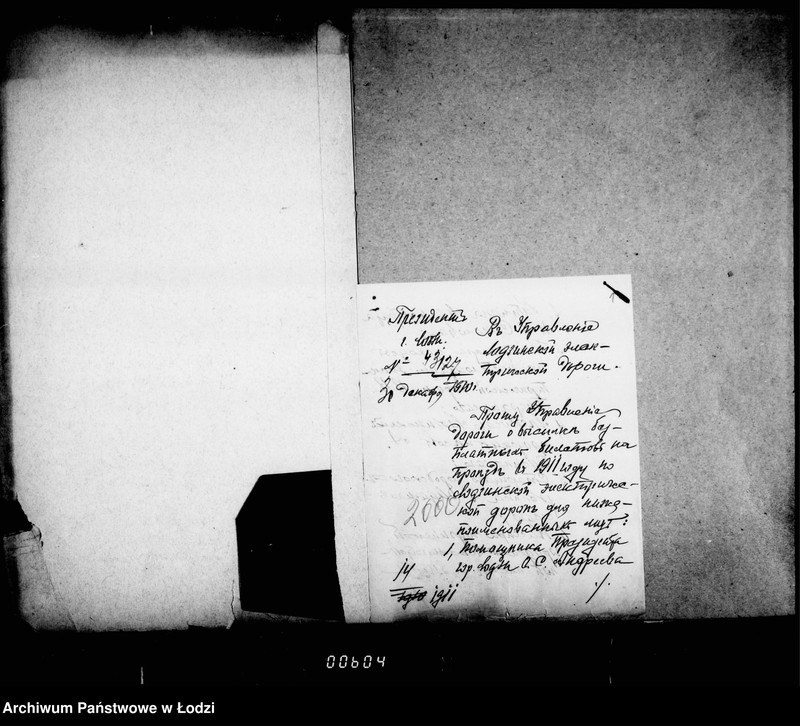 Президентъ
г. Лодзи.
№ 43127
30 декабря 1910 г.
Въ Управленіе
Лодзинской элек-
трической дороги.
Прошу Управленіе
дороги о высылкѣ без-
платныхъ билетовъ на
проѣздъ въ 1911 году по
Лодзинской электричес-
кой дорогѣ для ниже-
поименованныхъ лицъ:
1, Помощника Президента
гор. Лодзи А. С. Андреева
./.
2000
14
1911
00604
Archiwum Państwowe w Łodzi